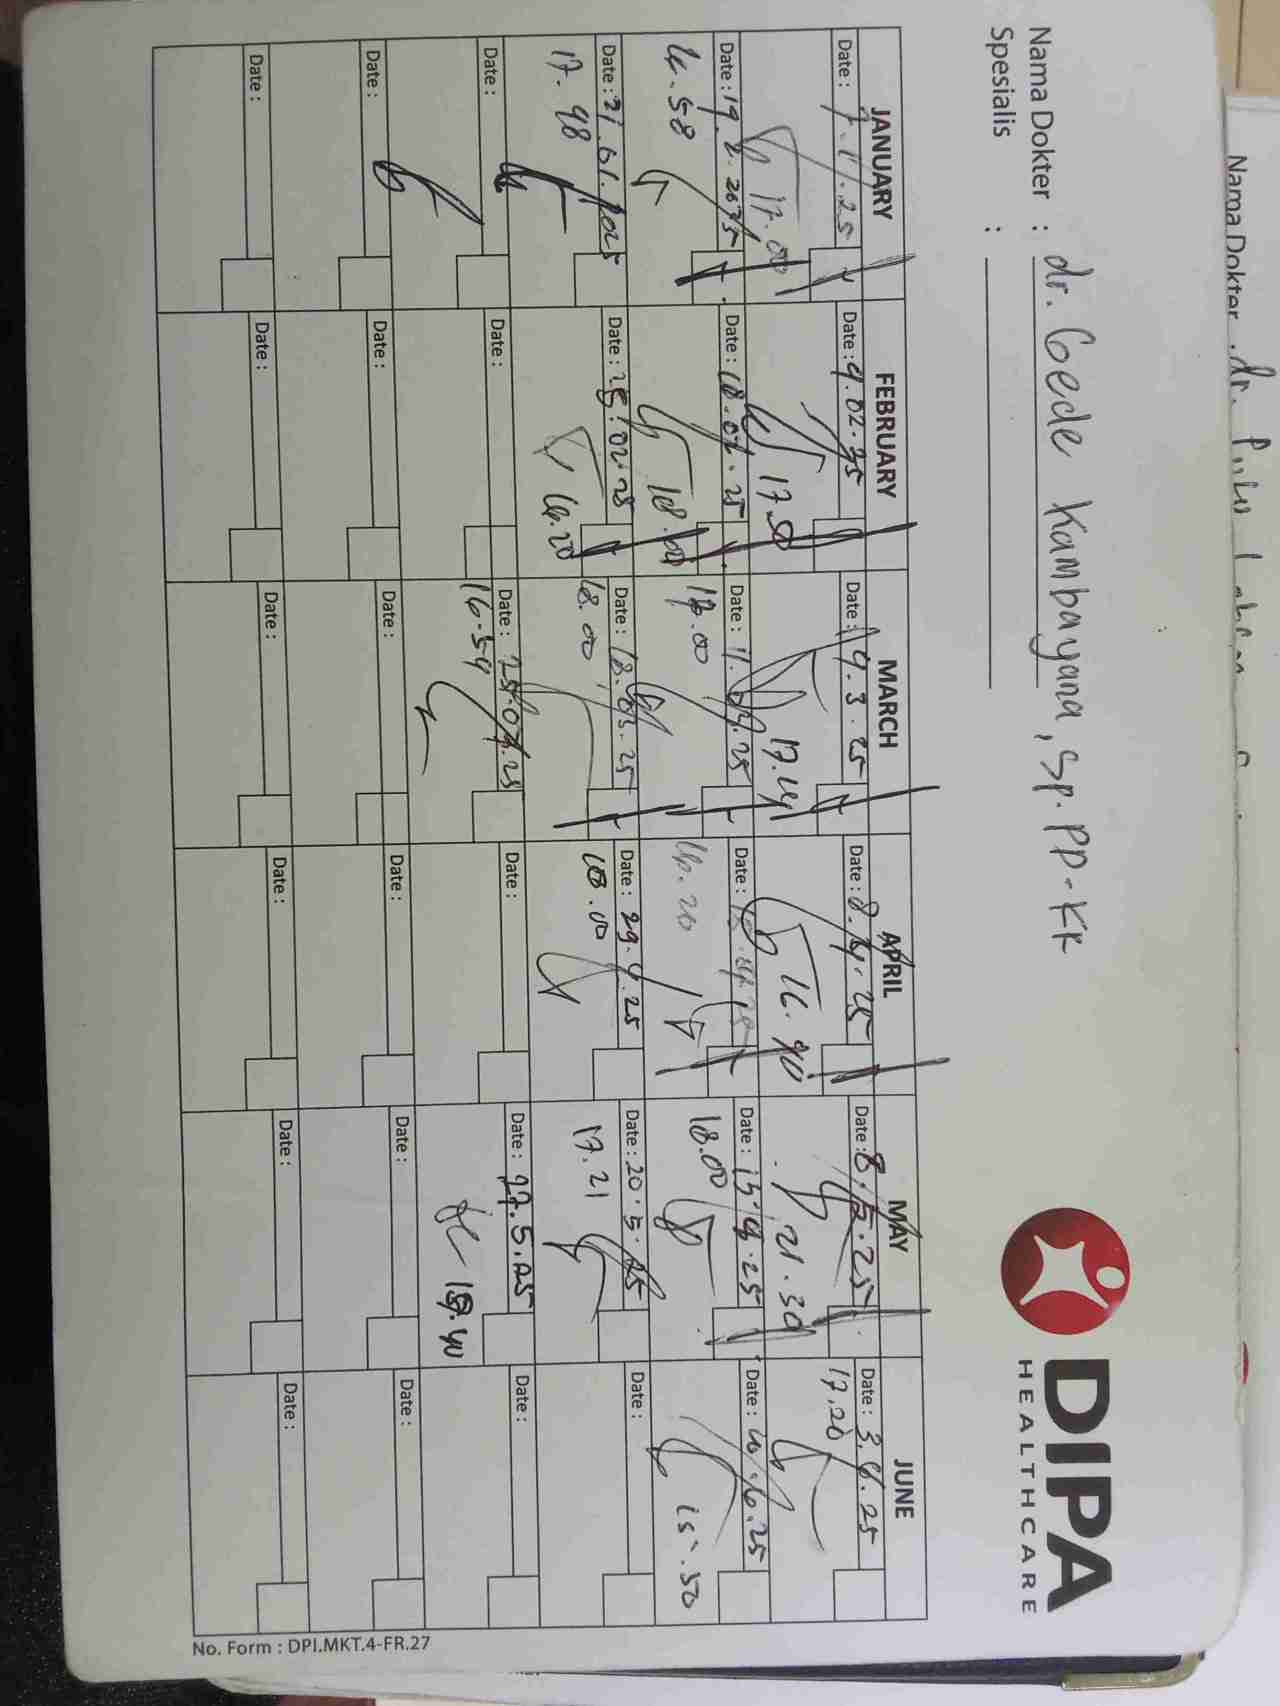 Nama Dokter : dr. Gede Kambayana, Sp. PD-KR
Spesialis :
DIPA
HEALTHCARE
JANUARY FEBRUARY MARCH APRIL MAY JUNE
Date : 7.1.25
17.00
Date : 4.02.25
17.50
Date : 19.3.25
Date : 8.4.25
16.40
Date : 8.5.25
21.30
Date : 3.6.25
17.20
Date :
Date : 18.02.25
18.00
Date : 11.03.25
17.00
Date :
16.20
Date :
18.00
Date : 10.6.25
15.50
Date : 21.01.2025
17.48
Date : 25.02.25
16.20
Date : 18.03.25
18.00
Date : 29.4.25
18.00
Date : 20.5.25
17.21
Date :
Date :
Date :
Date :
16.54
Date :
Date : 27.5.25
Date :
Date :
Date :
Date :
Date :
Date :
Date :
Date :
Date :
Date :
Date :
Date :
Date :
No. Form : DPI.MKT.4-FR.27
Nama Dokter : dr.